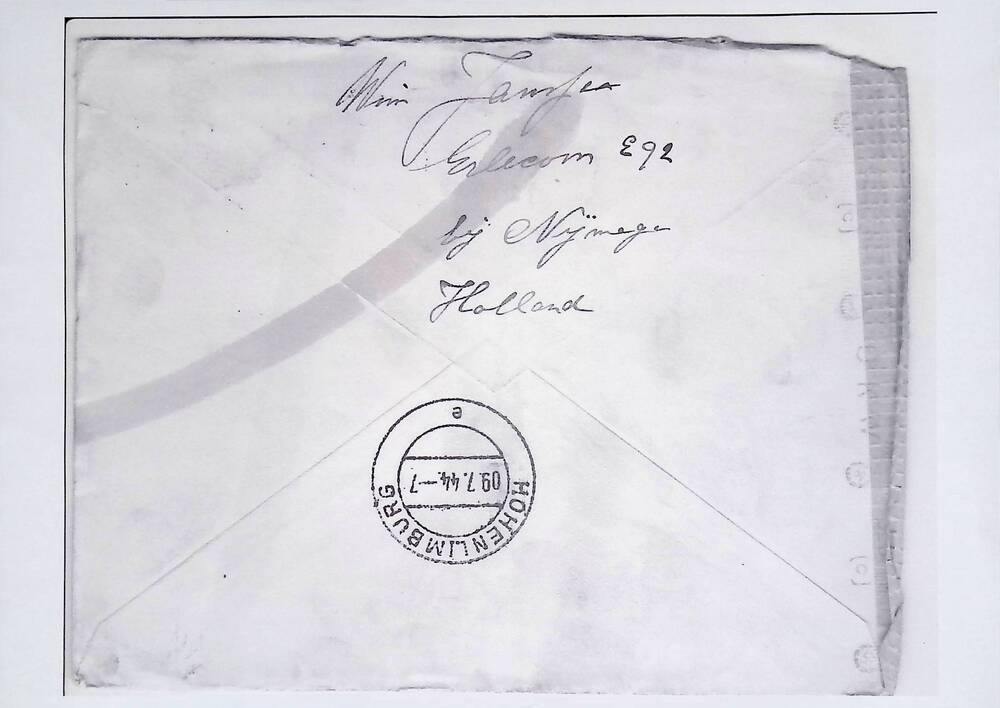 Wim Janssen
Erlecom E92
bij Nijmegen
Holland
e
09.7.44.–7
HOHENLIMBURG
(c)
(c)